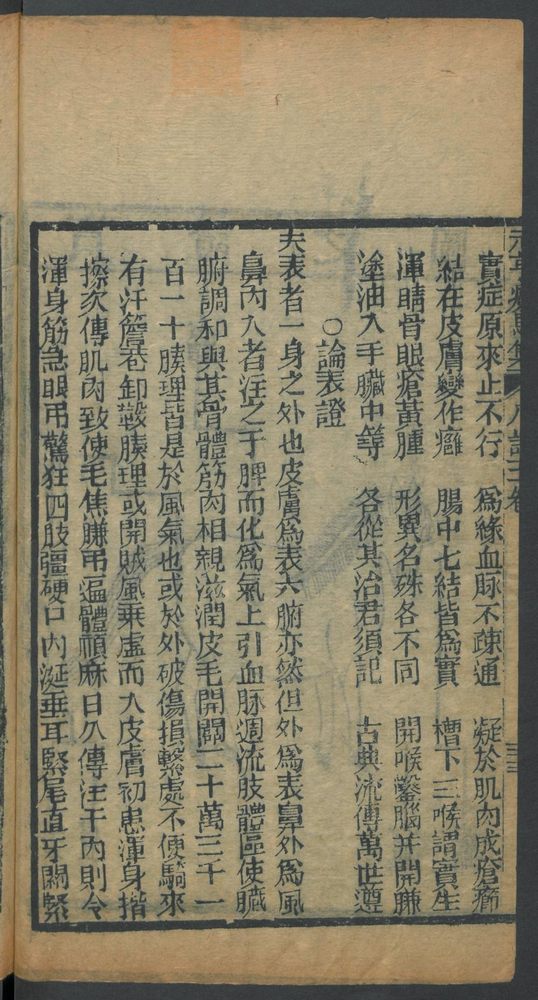 實症原來止不行 為緣血脉不疎通 凝於肌肉成瘡癤
結在皮膚變作癰 腸中七結皆為實 槽下三喉謂實生
渾睛骨眼瘡黃腫 形異名殊各不同 開喉鑿腦并開臁
塗油入手臟中等 各從其治君須記 古典流傳萬世遵
○論表證
夫表者一身之外也皮膚為表六腑亦然但外為表鼻外為風
鼻內入者注之于脾而化為氣上引血脉週流肢體區使臟
腑調和與其骨體筋肉相親滋潤皮毛開闢二十萬三千一
百一十腠理皆是於風氣也或於外破傷損繫處不便騎來
有汗簷巷卸鞍腠理或開賊風乘虛而入皮膚初患渾身揩
擦次傳肌肉致使毛焦臁吊遍體頑麻日久傳注于內則令
渾身筋急眼吊驚狂四肢彊硬口內涎垂耳緊尾直牙關緊